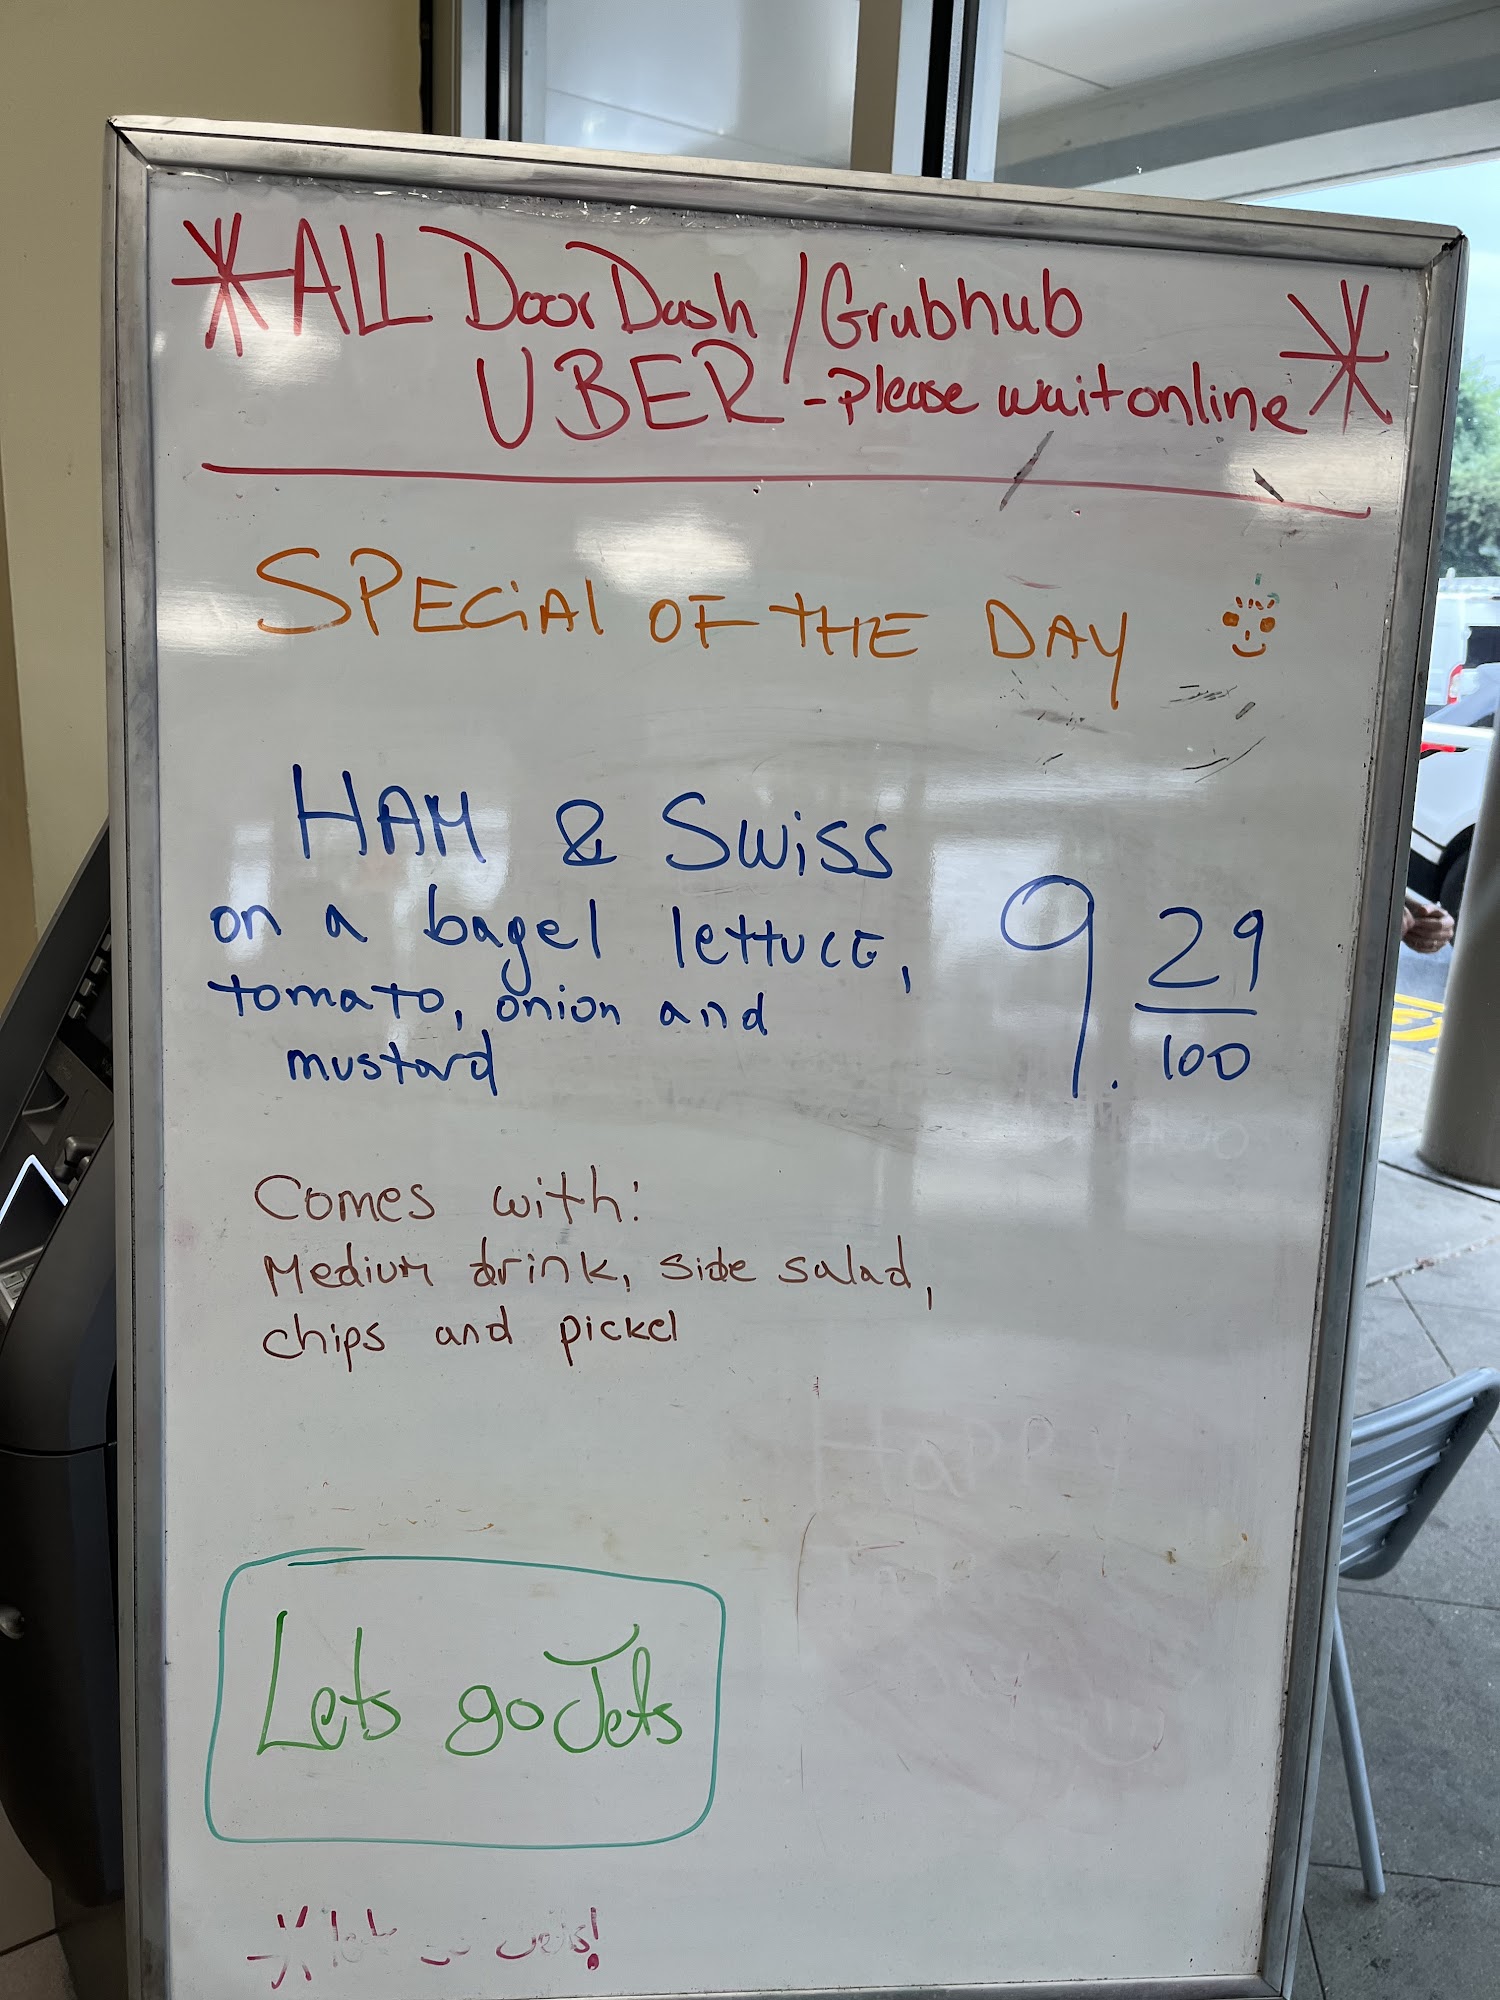 *ALL DoorDash / Grubhub *
UBER - Please wait online
SPECiAl OF THE DAY
HAM & Swiss
on a bagel lettuce,
tomato, onion and
mustard
9. 29/100
Comes with:
Medium drink, side salad,
chips and pickel
Happy
Lets go Jets